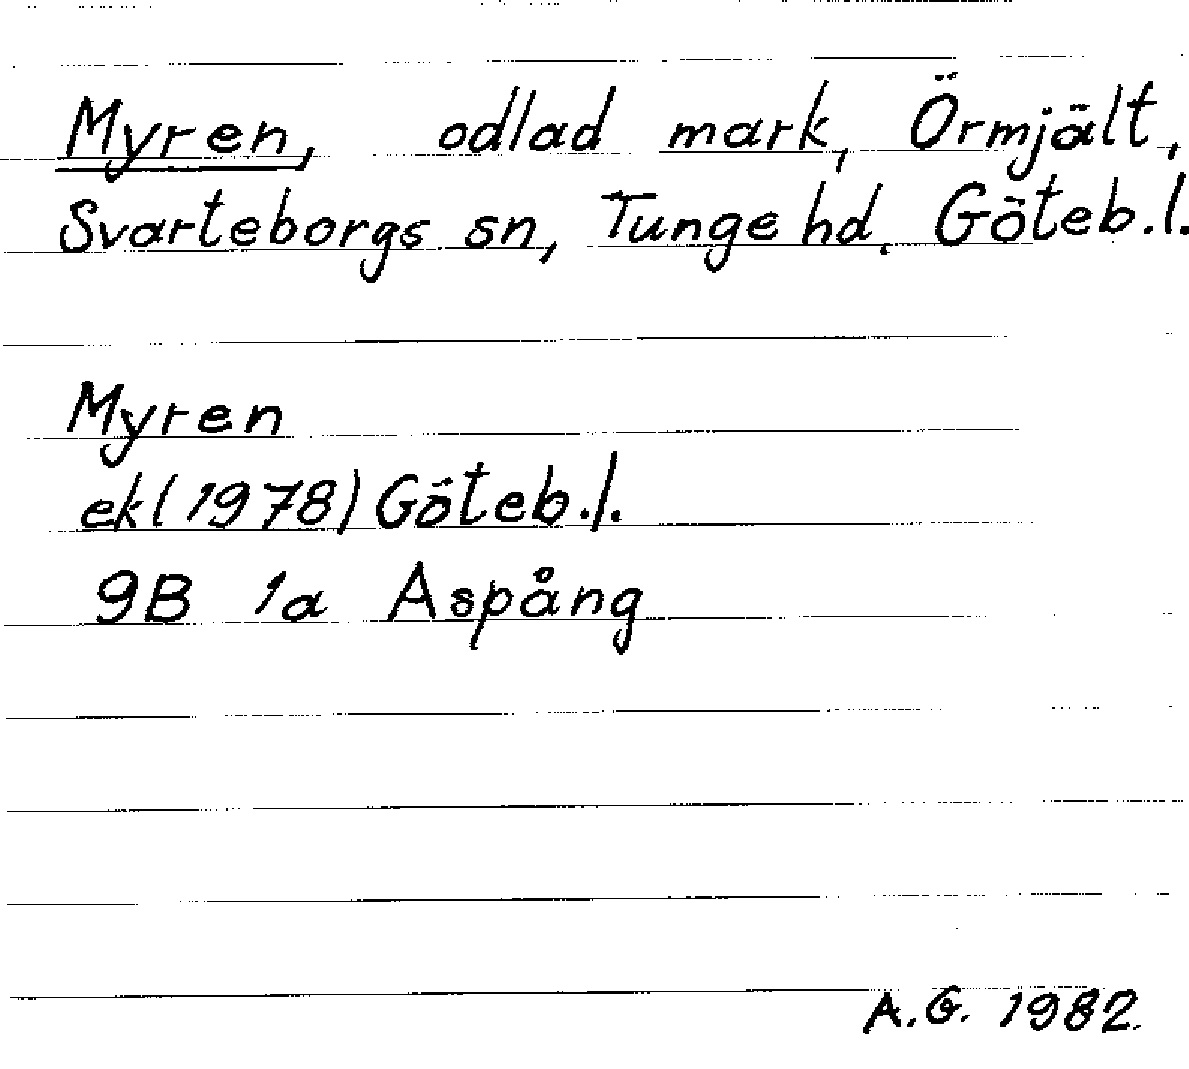 Myren, odlad mark, Örmjält,
Svarteborgs sn, Tunge hd. Göteb.l.
Myren
ek(1978) Göteb.l.
9B 1a Aspång
A.G. 1982.